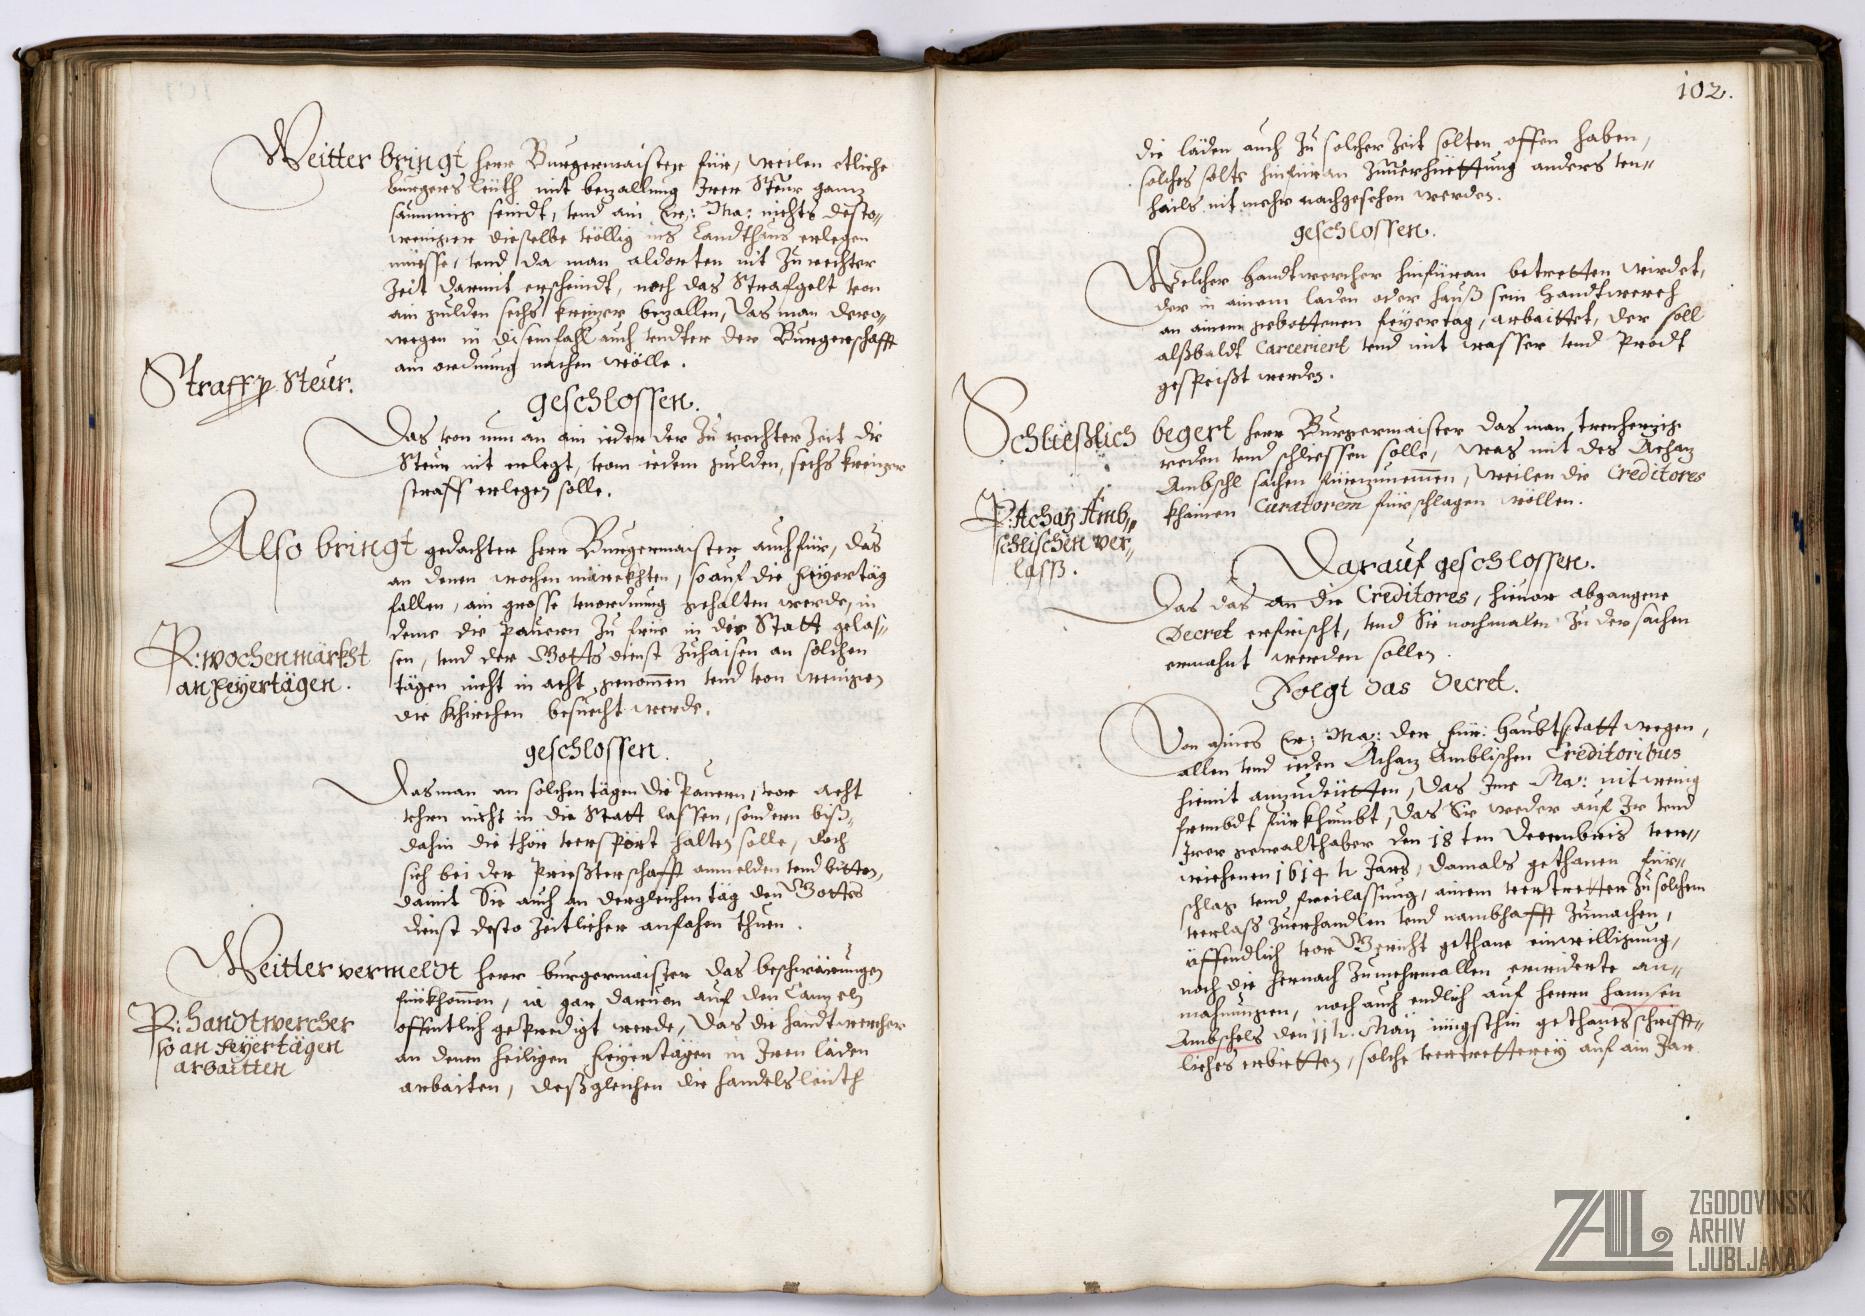 Weitter bringt herr Burgermaister für, weilen etliche
burgers leüth mit bezallung Irer Steur ganz
saummig seindt, vnd ain Er: Ma: nichts desto-
weniger dieselbe völlig ins Landthaus erlegen
müesse, vnd da man aldorten nit zu rechter
Zeit darmit erscheindt, noch das Strafgelt von
ain gulden sechs kreizer bezallen, Das man dero-
wegen in disem fahl auch vndter der Burgerschafft
ain ordnung machen wölle.
Straff p Steur.
geschlossen.
Das von nun an ain ieder der zu rechter Zeit die
Steur nit erlegt, vom iedem gulden, sechs kreizer
straff erlegen solle.
Also bringt gedachter herr Burgermaister auch für, das
an denen wochen märckhten, so auf die feyertäg
fallen, ain grosse vnordnung gehalten werde, in
deme die pauern zu frue in die Statt gelas-
R: wochenmärkht
sen, vnd der Gottsdienst zuhaisen an solchen
an feÿertägen.
tägen nicht in acht genommen vnd von wenigen
die Khirchen besuecht werde.
geschlossen.
Das man an solchen tägen die Pauern, vor acht
vhrn nicht in die Statt lassen, sondern biß-
dahin die thör versport halten solle, doch
sich bei der Priesterschafft anmelden vnd bitten,
damit Sie auch an dergleichen täg den Gotts
dienst desto Zeitlicher anfahen thuen.
Weitter vermeldt herr burgermaister das beschwärungen
fürkhommen, ia gar daruon auf den Canzeln
R: Handtwercher
offentlich gepredigt werde, Das die handtwercher
so an feÿertägen
an denen heiligen feyertägen in Iren läden
arbaitten
arbaiten, deßgleichen die handelsleüth
102.
die läden auch zu solcher Zeit solten offen haben,
solches solte hinfüran zuuerhüettung anders vn-
hails nit mehr nachgesehen werden.
geschlossen.
Welcher handtwercher hinfüran betretten wirdet,
der in ainem laden oder hauß sein handtwerch
an ainem gebottenen feyertag, arbaittet, der soll
alßbaldt Carceriert vnd mit wasser vnd Prodt
gespeißt werden.
Schließlich begert herr Burgermaister das man treuherzig
reden vnd schliessen solle, was mit des Achaz
Ambschl sachen fürzunemmen, weilen die Creditores
khainen Curatorem fürschlagen wöllen.
R: Achaz Amb-
schlischen ver-
lass.
Darauf geschlossen.
Das das an die Creditores, hieuor abgangene
Decret erfrischt, vnd Sie nochmalen zu der sachen
ermahnt werden sollen.
Folgt das Decret.
Von aines Er: Ma: der für: Haubtstatt wegen,
allen vnd ieden Achaz Amblischen Creditoribus
hiemit anzudeütten, Das Ine Ma: nit wenig
frembdt fürkhumbt, das Sie weder auf Ir vnd
Irer gewalthaber den 18 ten Decembris ver-
wichenen 1614 t. Jars, damals gethanen für-
schlag vnd freilassung, ainem vertretter zu solchem
verlaß zuerhandlen vnd nambhafft zumachen,
öffendlich vor Gericht gethane einwilligung,
noch die hernach zumehrmallen erwiderte an-
mahnungen, noch auch endlich auf herrn Hannsen
Ambschels den 11 t. Maÿ iüngsthin gethanes schrifft-
liches erbietten, solche vertretterey auf ain Jar
ZAL
ZGODOVINSKI
ARHIV
LJUBLJANA